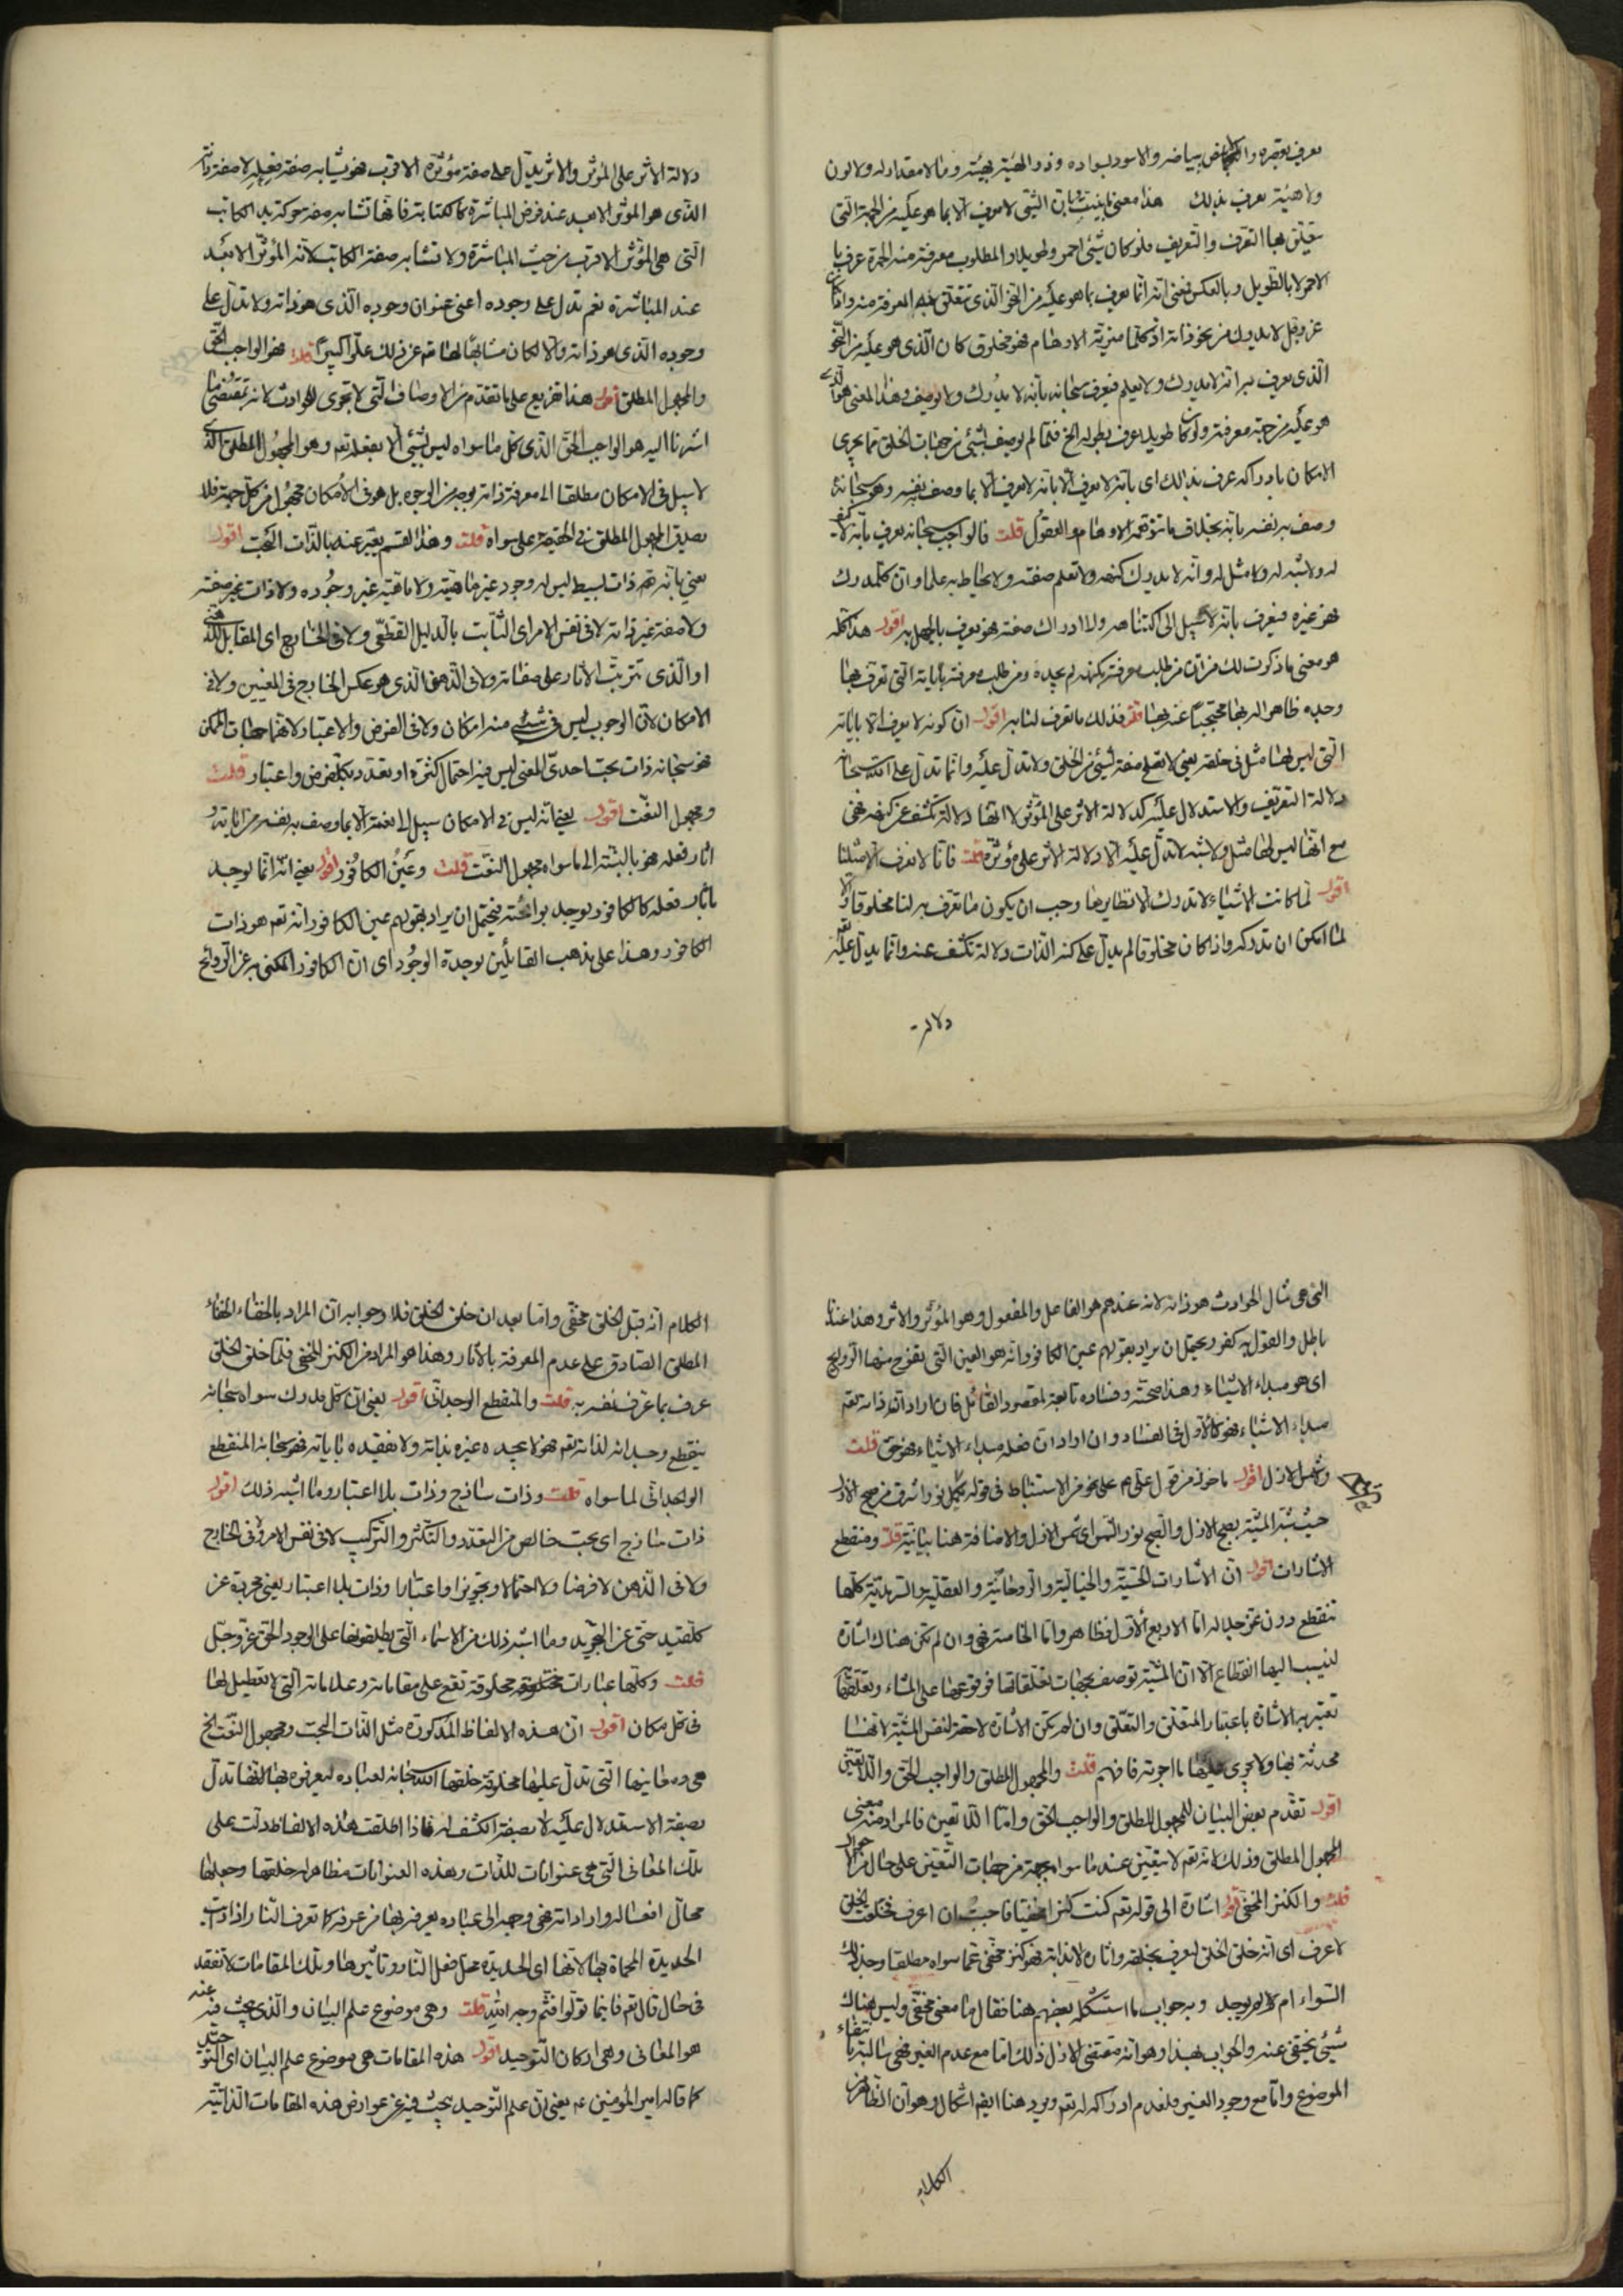 يعرف بقصره والابيض ببياضه والاسود بسواده وذو الهيئة بهيئته وما لا مقدار له ولا لون
ولا هيئة يعرف بذلك هذا معنى ما بينت بان الشئ لا يعرف الا بما هو عليه من الجهة التى
يتعلق بها التعرف والتعريف فلو كان شئ احمر وطويلا والمطلوب معرفته منه الحمرة عرف با
لاحمر لا بالطويل وبالعكس يعنى انه انما يعرف بما هو عليه من النحو الذى تتعلق به المعرفة منه
عز وجل لا يدرك من نحو ذاته اذ كلما ميزته الاوهام فهو مخلوق كان الذى هو عليه من النحو
الذى يعرف به انه لا يدرك ولا يعلم فيعرف سبحانه بانه لا يدرك ولا يوصف وهذا المعنى هو
هو عليه من جهة معرفته ولو كان طويلا عرف بطوله الخ فلما لم يوصف بشئ من جهات الخلق مما يجرى
الامكان بادراكه عرف بذلك اى بانه لا يعرف الا بانه لا يعرف الا بما وصف به نفسه وهو سبحانه
وصف به نفسه بانه بخلاف ما تتوهمه الاوهام والعقول قلت فالواجب سبحانه يعرف بانه لا كفو
له ولا شبه له ولا مثل له وانه لا يدرك كنهه ولا تعلم صفته ولا يحاط به علما وان كل مدرك
فهو غيره فيعرف بانه لا سبيل الى اكتناهه ولا ادراك صفته فهو يعرف بالجهل به اقول هذا كله
هو معنى ما ذكرت لك من ان من طلب معرفته بكنهه لم يجده ومن طلب معرفته باياته التى تعرف بها
وجده ظاهرا له بها محتجبا عنه بها قلت فذلك ما تعرف لنا به اقول ان كونه لا يعرف الا باياته
التى ليس لها مثل فى خلقه يعنى لا تقع صفة لشئ من الخلق ولا تدل عليه وانما تدل على الله سبحانه
دلالة التعريف والاستدلال عليه كدلالة الاثر على المؤثر لا انها دلالة تكشف عن كنهه فهى
مع انها ليس لها مثل ولا شبه لا تدل عليه الا دلالة الاثر على مؤثره قلت فانا لا نعرف الا مثلنا
اقول لما كانت الاشياء لا تدرك الا نظايرها وجب ان يكون ما تعرف به لنا مخلوقا والا
لما امكن ان ندركه واذا كان مخلوقا لم يدل على كنه الذات دلالة تكشف عنه وانما يدل عليه
دلالة
دلالة الاثر على المؤثر والاثر يدل على صفة مؤثره الاقرب فهو يشابه صفة فعله لا صفة ذاته
الذى هو المؤثر الابعد عند فرض المباشرة كالكتابة فانها تشابه صفة حركة يد الكاتب
التى هى المؤثر الاقرب من حيث المباشرة ولا تشابه صفة الكاتب لانه المؤثر الابعد
عند المباشرة نعم تدل على وجوده اعنى عنوان وجوده الذى هو ذاته ولا تدل على
وجوده الذى هو ذاته والا لكان مشابها لها تعالى عن ذلك علوا كبيرا قلت فهو الواجب الحق
والمجهول المطلق اقول هذا تفريع على ما تقدم من الاوصاف التى لا تجرى للحوادث لانه مقتضى ما
اشرنا اليه هو الواجب الحق الذى كل ما سواه ليس بشئ الا بفعله تعم وهو المجهول المطلق الذى
لا سبيل فى الامكان مطلقا الى معرفة ذاته بوجه من الوجوه بل هو فى الامكان مجهول من كل جهة فلا
يصدق المجهول المطلق فى الحقيقة على سواه قلت وهذا القسم يعبر عنه بالذات البحت اقول
يعنى بانه تعم ذات بسيط ليس له وجود غير ماهيته ولا ماهية غير وجوده ولا ذات غير صفته
ولا صفة غير ذاته لا فى نفس الامر اى الثابت بالدليل القطعى ولا فى الخارج اى المقابل للذهنى
او الذى تترتب الاثار على صفاته ولا فى الذهن الذى هو عكس الخارج فى المعنيين ولا فى
الامكان لان الوجوب ليس فى شئ منه امكان ولا فى الفرض والاعتبار لانهما جهات الممكن
فهو سبحانه ذات بحت احدى المعنى ليس فيه احتمال كثرة او تعدد بكل فرض واعتبار قلت
ومجهول النعت اقول يعنى انه ليس فى الامكان سبيل الى نعته الا بما وصف به نفسه من اياته و
اثار فعله فهو بالنسبة الى ما سواه مجهول النعت قلت وعين الكافور اقول يعنى انه انما يوجد
باثار فعله كالكافور يوجد برائحته فيحتمل ان يراد بقولهم عين الكافور انه تعم هو ذات
الكافور وهذا على مذهب القائلين بوحدة الوجود اى ان الكافور المكنى به عن الروائح
التى هى مثال الحوادث هو ذاته لانه عندهم هو الفاعل والمفعول وهو المؤثر والاثر وهذا عندنا
باطل والقول به كفر ويحتمل ان يراد بقولهم عين الكافور انه هو العين التى يفوح منها الروايح
اى هو مبداء الاشياء وهذا صحته وفساده تابعة لمقصود القائل فان اراد انه ذاته تعم
مبداء الاشياء فهو كالاول فى الفساد وان اراد ان فعله مبداء الاشياء فهو حق قلت
وشمس الازل اقول ماخوذ من قول على عم على نحو من الاستنباط فى قوله لكميل نور اشرق من صبح الازل
حيث شبه المشية بصبح الازل والصبح نور الشمس اى شمس الازل والاضافة هنا بيانية قلت ومنقطع
الاشارات اقول ان الاشارات الحسية والخيالية والروحانية والعقلية والسرمدية كلها
تنقطع دون عز جلاله اما الاربع الاول فظاهر واما الخامسة فهى وان لم تكن هناك اشارة
لينسب اليها انقطاع الا ان المشية توصف بجهات تعلقاتها فوقوعها على المشاء وتعلقها
تعتبر به الاشارة باعتبار المتعلق والتعلق وان لم تكن الاشارة لاحقة لنفس المشية لانها
محدثة بها ولا يجرى عليها ما اجرته فافهم قلت والمجهول المطلق والواجب الحق واللاتعين
اقول تقدم بعض البيان للمجهول المطلق والواجب الحق واما اللاتعين فالمراد منه معنى
المجهول المطلق وذلك لانه تعم لا يتعين عند ما سواه بجهة من جهات التعين على حال من الاحوال
قلت والكنز المخفى اقول اشارة الى قوله تعم كنت كنزا مخفيا فاحببت ان اعرف فخلقت الخلق
لاعرف اى انه خلق الخلق ليعرف بخلقه واثاره لا بذاته فهو كنز مخفى عما سواه مطلقا وجد ذلك
السواء ام لم يوجد وبه جواب ما استشكله بعضهم هنا فقال ما معنى مخفى وليس هناك
شئ يختفى عنه والجواب بهذا وهو انه مقتضى الازل ذلك اما مع عدم الغير فهى سالبة بانتفاء
الموضوع واما مع وجود الغير فلعدم ادراكه له تعم ويرد هنا ايضا اشكال وهو ان الظاهر من
الكلام
الكلام انه قبل الخلق مخفى واما بعد ان خلق الخلق فلا وجوابه ان المراد بالخفاء الخفاء
المطلق الصادق على عدم المعرفة بالاثار وهذا هو المراد من الكنز المخفى فلما خلق الخلق
عرف بما عرف نفسه به قلت والمنقطع الوجدانى اقول يعنى ان كل مدرك سواه سبحانه
ينقطع وجدانه لذاته تعم فهو لا يجده غيره بذاته ولا يفقده باياته فهو سبحانه المنقطع
الوجدانى لما سواه قلت وذات ساذج وذات بلا اعتبار وما اشبه ذلك اقول
ذات ساذج اى بحت خالص من التعدد والتكثر والتركيب لا فى نفس الامر ولا فى الخارج
ولا فى الذهن لا فرضا ولا احتمالا وتجويزا واعتبارا وذات بلا اعتبار يعنى مجردة عن
كل قيد حتى عن التجريد وما اشبه ذلك من الاسماء التى يطلقونها على الوجود الحق عز وجل
قلت وكلها عبارات مخلوقة تقع على مقاماته وعلاماته التى لا تعطيل لها
فى كل مكان اقول ان هذه الالفاظ المذكورة مثل الذات البحت ومجهول النعت الخ
هى ومعانيها التى تدل عليها مخلوقة خلقها الله سبحانه لعباده ليعرفوه بها لانها تدل
بصفة الاستدلال عليه لا بصفة الكشف له فاذا اطلقت هذه الالفاظ دلت على
تلك المعانى التى هى عنوانات للذات وهذه العنوانات مظاهر له خلقها وجعلها
محال افعاله واراداته فهى وجهه الى عباده يعرفه بها من عرفه كما تعرف النار اذا رايت
الحديدة المحماة بها لانها اى الحديدة محل فعل النار وتأثيرها وتلك المقامات لا تفقد
فى حال قال تعم فاينما تولوا فثم وجه الله قلت وهى موضوع علم البيان والذى يبحث فيه عنه
هو المعانى وهى اركان التوحيد اقول هذه المقامات هى موضوع علم البيان اى التوحيد
كما قاله امير المؤمنين عم يعنى ان علم التوحيد يبحث فيه عن عوارض هذه المقامات الذاتية